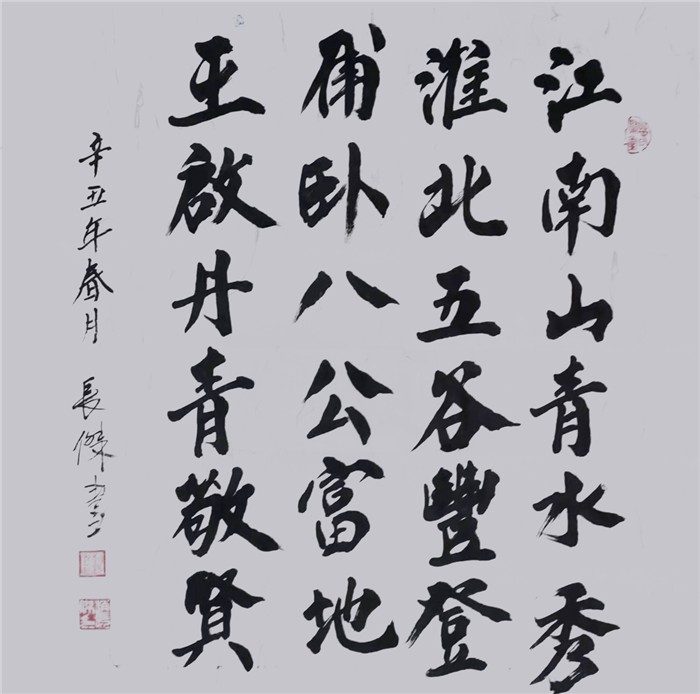 江南山青水秀
淮北五谷豐登
甫卧八公富地
王啟丹青敬賢
辛丑年春月 長傑書